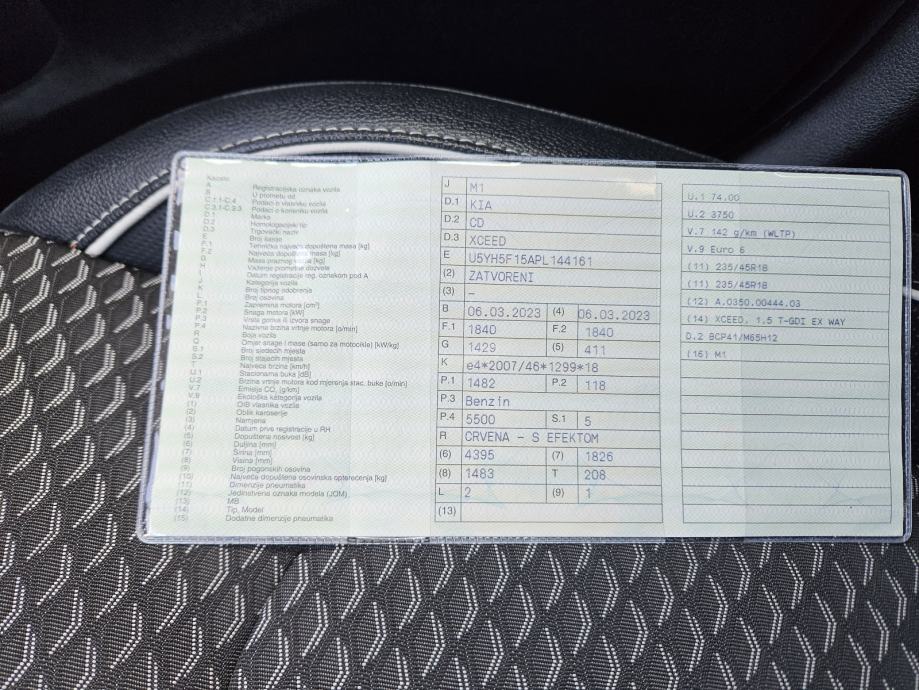 Kazalo:
A Registracijska oznaka vozila
B U prometu od
C.1.1-C.4 Podaci o vlasniku vozila
C.3.1-C.3.3 Podaci o korisniku vozila
D.1 Marka
D.2 Homologacijski tip
D.3 Trgovački naziv
E Broj šasije
F.1 Tehnička najveća dopuštena masa [kg]
F.2 Najveća dopuštena masa [kg]
G Masa praznog vozila [kg]
H Važenje prometne dozvole
I Datum registracije reg. oznakom pod A
J Kategorija vozila
K Broj tipnog odobrenja
L Broj osovina
P.1 Zapremina motora [cm³]
P.2 Snaga motora [kW]
P.3 Vrsta goriva ili izvora snage
P.4 Nazivna brzina vrtnje motora [o/min]
R Boja vozila
Q Omjer snage i mase (samo za motocikle) [kW/kg]
S.1 Broj sjedećih mjesta
S.2 Broj stajaćih mjesta
T Najveća brzina [km/h]
U.1 Stacionarna buka [dB]
U.2 Brzina vrtnje motora kod mjerenja stac. buke [o/min]
V.7 Emisija CO₂ [g/km]
V.9 Ekološka kategorija vozila
(1) OIB vlasnika vozila
(2) Oblik karoserije
(3) Namjena
(4) Datum prve registracije u RH
(5) Dopuštena nosivost [kg]
(6) Duljina [mm]
(7) Širina [mm]
(8) Visina [mm]
(9) Broj pogonskih osovina
(10) Najveća dopuštena osovinska opterećenja [kg]
(11) Dimenzije pneumatika
(12) Jedinstvena oznaka modela (JOM)
(13) MB
(14) Tip, Model
(15) Dodatne dimenzije pneumatika
J M1
D.1 KIA
D.2 CD
D.3 XCEED
E U5YH5F15APL144161
(2) ZATVORENI
(3) –
B 06.03.2023 (4) 06.03.2023
F.1 1840 F.2 1840
G 1429 (5) 411
K e4*2007/46*1299*18
P.1 1482 P.2 118
P.3 Benzin
P.4 5500 S.1 5
R CRVENA - S EFEKTOM
(6) 4395 (7) 1826
(8) 1483 T 208
L 2 (9) 1
(13)
U.1 74.00
U.2 3750
V.7 142 g/km (WLTP)
V.9 Euro 6
(11) 235/45R18
(11) 235/45R18
(12) A.0350.00444.03
(14) XCEED, 1.5 T-GDI EX WAY
D.2 BCP41/M65H12
(16) M1